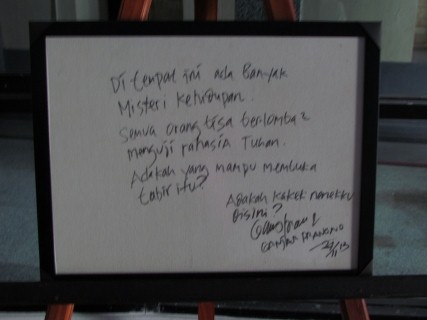 Di tempat ini ada Banyak
Misteri kehidupan.
Semua orang bisa berlomba2
menguji rahasia Tuhan.
Adakah yang mampu membuka
tabir itu?
Adakah kakek nenekku
Disini?
GANJAR PRANOWO